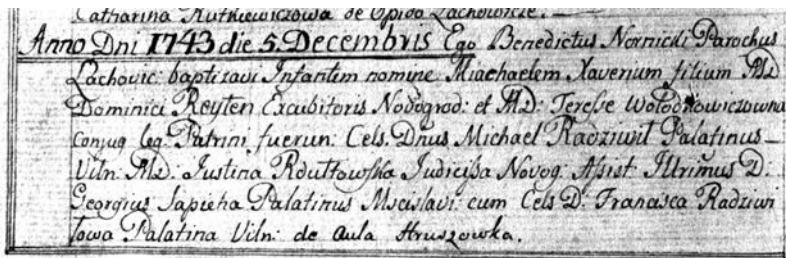 Catharina Rutkiewiczowa de Opido Lachowicze.
Anno Dni 1743 die 5. Decembris Ego Benedictus Nornicki Parochus
Lachovic: baptizavi Infantem nomine Miachaelem Xaverium filium MD
Dominici Reyten Excubitoris Novogrod: et MD: Teresse Wołodkowiczowna
Conjug leg: Patrini fuerun: Cels. Dnus Michael Radziwił Palatinus
Viln: MD: Justina Rdułtowska Judicissa Novog: Assist: Illrimus D:
Georgius Sapieha Palatinus Mscislavi: cum Cels D: Francisca Radziwi
łowa Palatina Viln: de aula Hruszowka.